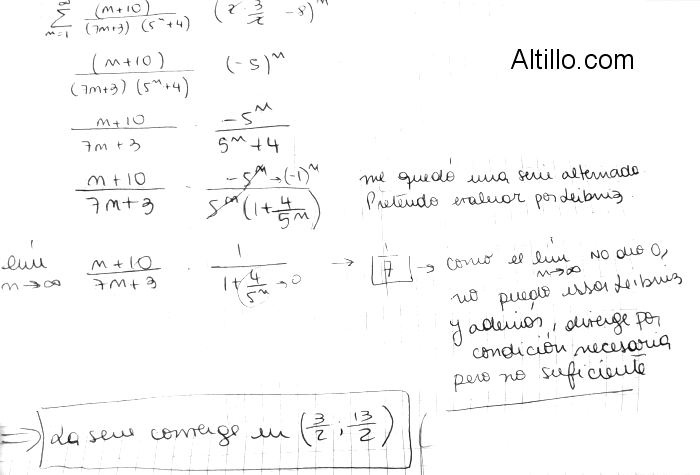 ∞
∑ (n+10) / (7n+3) (5ⁿ+4) (2·3/2 -8)ⁿ
n=1
Altillo.com
(n+10) / (7n+3) (5ⁿ+4) (-5)ⁿ
n+10 / 7n+3 · -5ⁿ / 5ⁿ+4
n+10 / 7n+3 · -5ⁿ→(-1)ⁿ / 5ⁿ(1+4/5ⁿ)
me quedó una serie alternada.
Pretendo evaluar por Leibniz.
lím n→∞ n+10 / 7n+3 · 1 / 1+4/5ⁿ→0 → 1/7 →
como el lím n→∞ no dio 0,
no puedo usar Leibniz
y además, diverge por
condición necesaria
pero no suficiente
⇒ La serie converge en (3/2 ; 13/2)